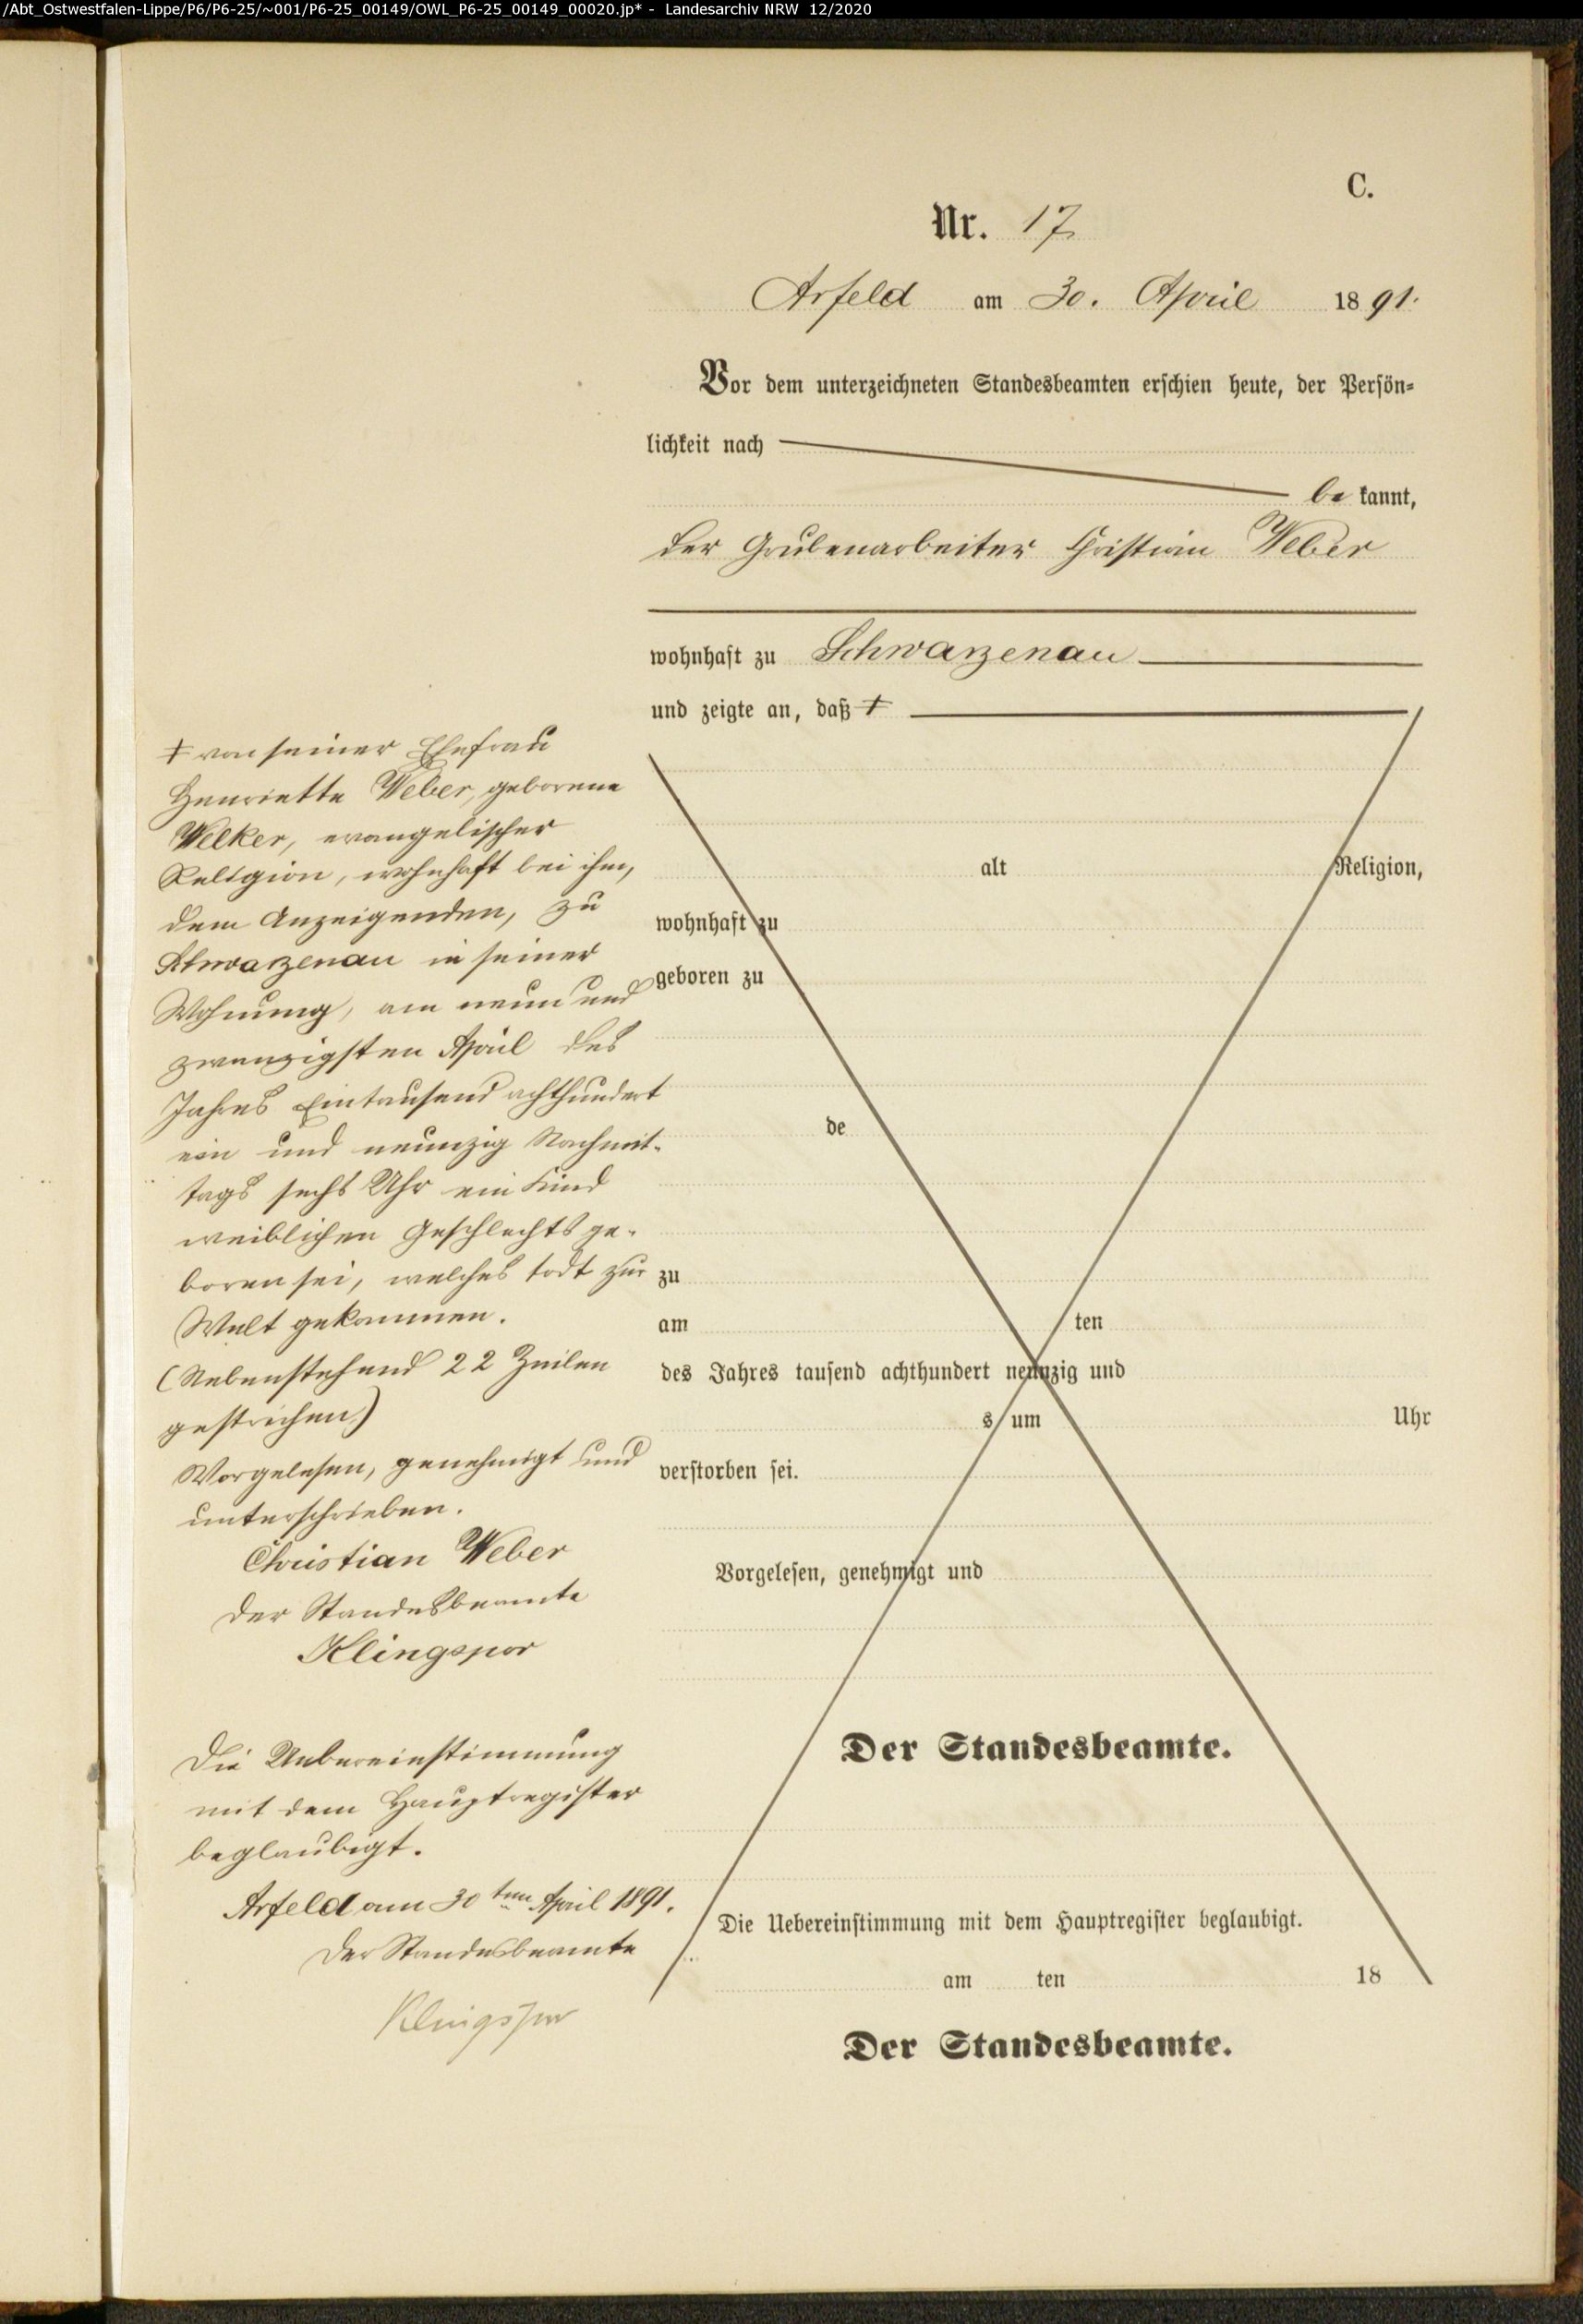 /Abt_Ostwestfalen-Lippe/P6/P6-25/~001/P6-25_00149/OWL_P6-25_00149_00020.jp* - Landesarchiv NRW 12/2020
C.
Nr. 17
Arfeld am 30. April 1891.
Vor dem unterzeichneten Standesbeamten erschien heute, der Persön-
lichkeit nach
be kannt,
der Grubenarbeiter Christian Weber
wohnhaft zu Schwarzenau
und zeigte an, daß ‡
‡ von seiner Ehefrau
Henriette Weber, geborene
Welker, evangelischer
Religion, wohnhaft bei ihm,
dem Anzeigenden, zu
Schwarzenau in seiner
Wohnung, am neun und
zwanzigsten April des
Jahres Eintausend achthundert
ein und neunzig Nachmit-
tags sechs Uhr ein Kind
weiblichen Geschlechts ge-
boren sei, welches todt zur
Welt gekommen.
(Nebenstehend 22 Zeilen
gestrichen.)
Vorgelesen, genehmigt und
unterschrieben.
Christian Weber
Der Standesbeamte
Klingspor
Die Uebereinstimmung
mit dem Hauptregister
beglaubigt.
Arfeld am 30ten April 1891.
Der Standesbeamte
Klingspor
alt Religion,
wohnhaft zu
geboren zu
de
zu
am ten
des Jahres tausend achthundert neunzig und
s um Uhr
verstorben sei.
Vorgelesen, genehmigt und
Der Standesbeamte.
Die Uebereinstimmung mit dem Hauptregister beglaubigt.
am ten 18
Der Standesbeamte.